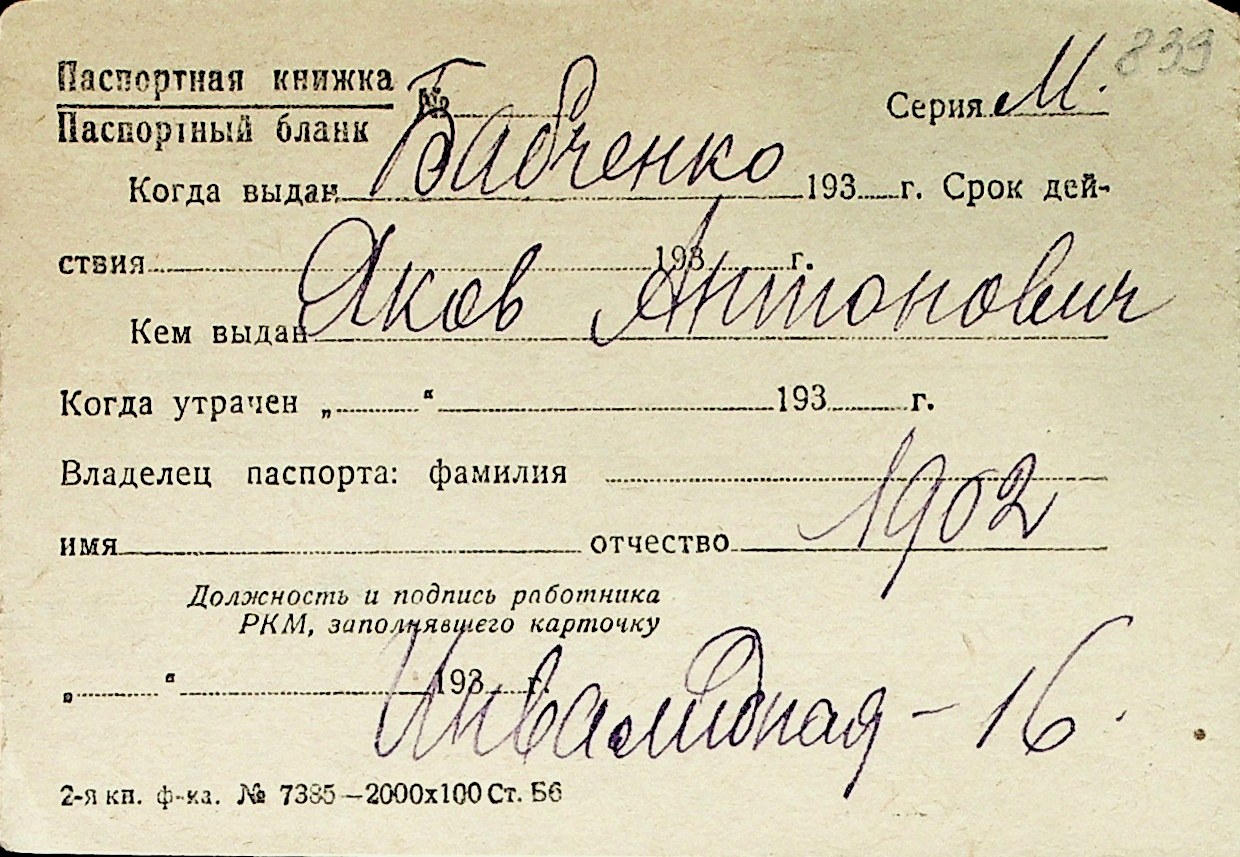 839
Паспортная книжка
№ Серия М.
Паспортный бланк
Бабченко
Когда выдан 193 г. Срок дей-
ствия 193 г.
Яков Антонович
Кем выдан
Когда утрачен „ “ 193 г.
Владелец паспорта: фамилия
1902
имя отчество
Должность и подпись работника
РКМ, заполнявшего карточку
„ “ 193 г.
Инвалидная - 16.
2-я кн. ф-ка. № 7385—2000х100 Ст. Б6